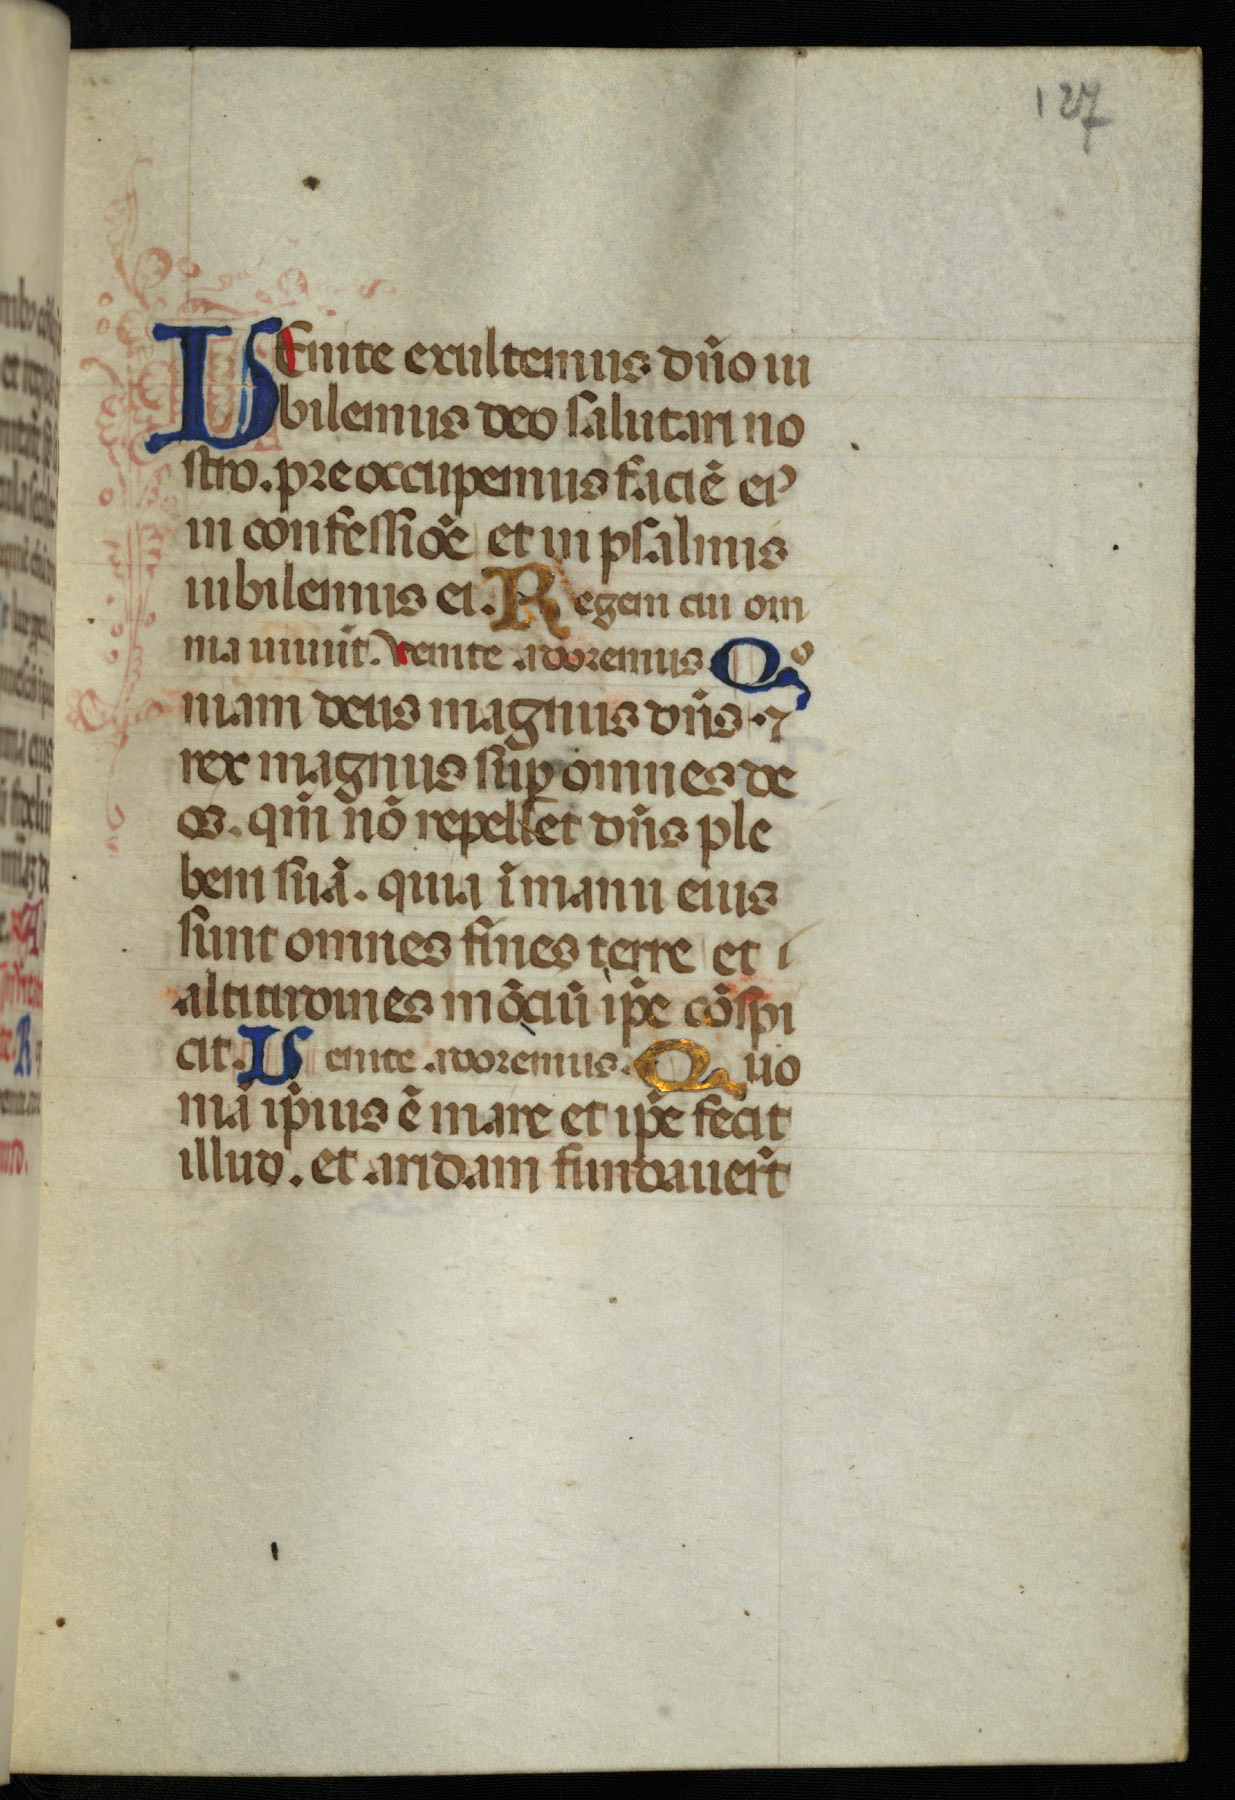 127
VEnite exultemus dn̄o iu
bilemus deo salutari no
stro. preoccupemus faciē eiꝰ
in confessiōe et in psalmis
iubilemus ei. Regem cui om
nia uiuūt. Venite adoremus Qo
niam deus magnus dn̄s ⁊
rex magnus suꝑ omnes de
os. qm̄ nō repellet dn̄s ple
bem suā. quia ī manu eius
sunt omnes fines terre et
altitudines mōciū ip̄e cōspi
cit. Venite adoremus. Quo
niā ip̄ius ē mare et ip̄e fecit
illud. et aridam fundauer̄t